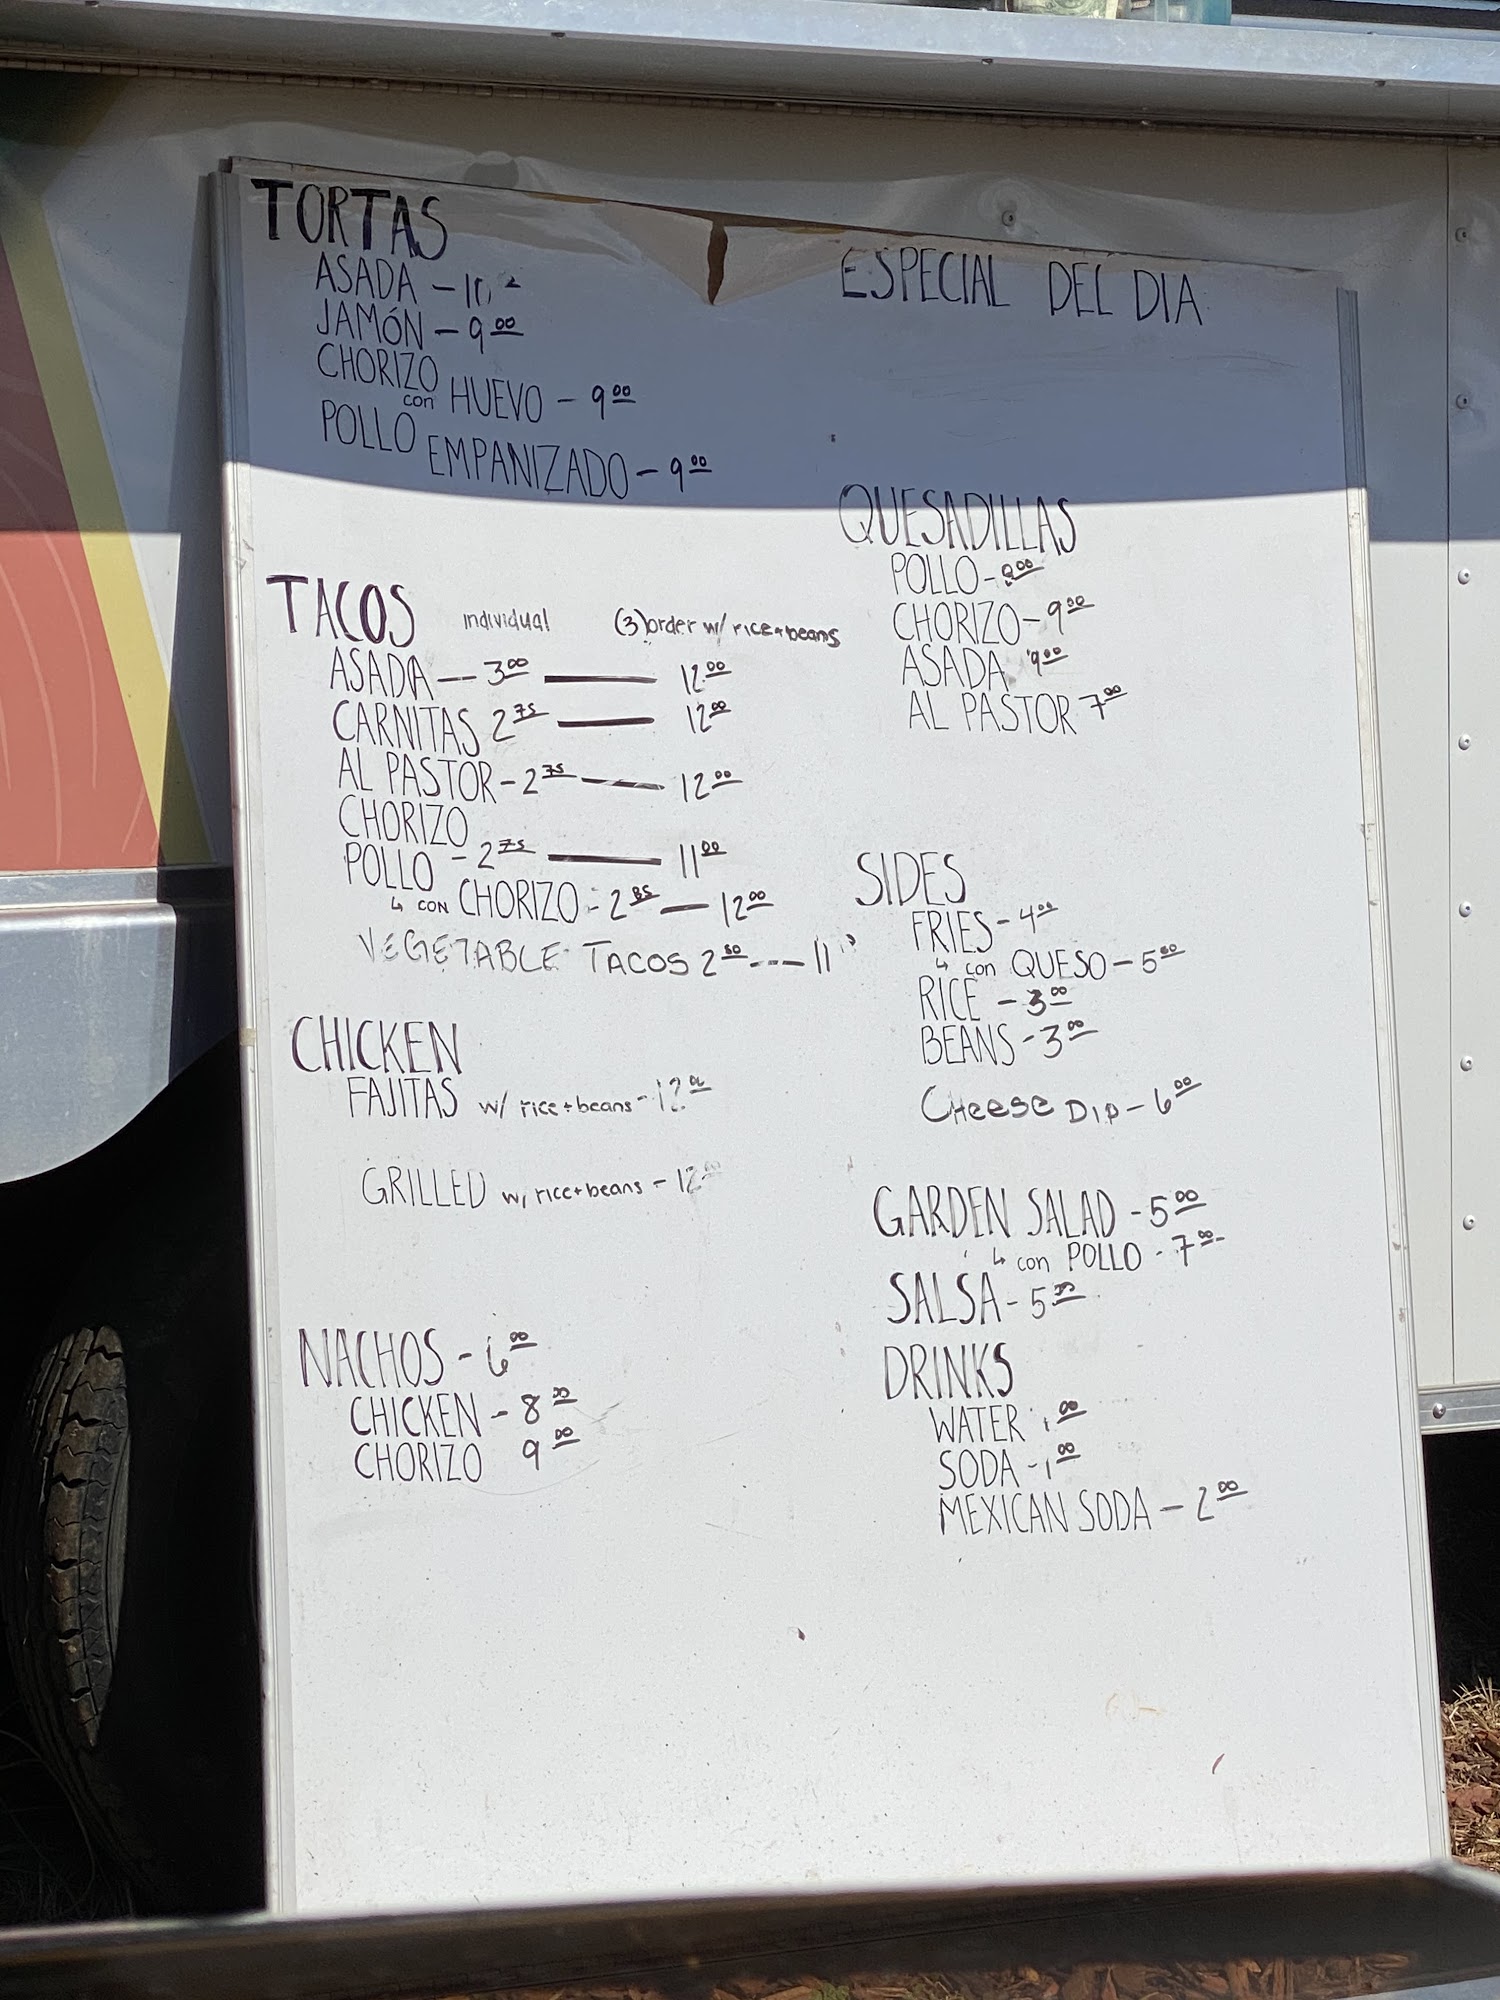 TORTAS
ASADA -
JAMÓN - 9.00
CHORIZO
con HUEVO - 9.00
POLLO
EMPANIZADO - 9.00
TACOS individual (3) order w/ rice + beans
ASADA — 3.00 — 12.00
CARNITAS 2.75 — 12.00
AL PASTOR - 2.75 — 12.00
CHORIZO
POLLO - 2.75 — 11.00
↳ CON CHORIZO - 2.85 — 12.00
VEGETABLE TACOS 2.50 --- 11
CHICKEN
FAJITAS w/ rice + beans - 12.00
GRILLED w/ rice + beans - 12
NACHOS - 6.00
CHICKEN - 8.00
CHORIZO 9.00
ESPECIAL DEL DIA
QUESADILLAS
POLLO -
CHORIZO - 9.00
ASADA 9.00
AL PASTOR 7.00
SIDES
FRIES - 4.00
↳ con QUESO - 5.50
RICE - 3.00
BEANS - 3.00
CHeese DIP - 6.00
GARDEN SALAD - 5.00
↳ con POLLO - 7.00
SALSA - 5.00
DRINKS
WATER 1.00
SODA - 1.00
MEXICAN SODA - 2.00